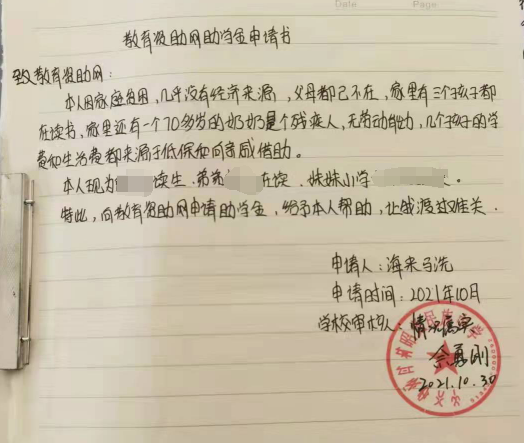 Date Page
教育资助网助学金申请书
致教育资助网：
本人因家庭贫困，几乎没有经济来源，父母都已不在，家里有三个孩子都
在读书，家里还有一个70多岁的奶奶是个残疾人，无劳动能力，几个孩子的学
费和生活费都来源于低保和向亲戚借助。
本人现为 读生．弟弟 在读．妹妹小学 。
特此，向教育资助网申请助学金，给予本人帮助，让我渡过难关．
申请人：海来马洗
申请时间：2021年10月
学校审核人：情况属实
2021.10.30